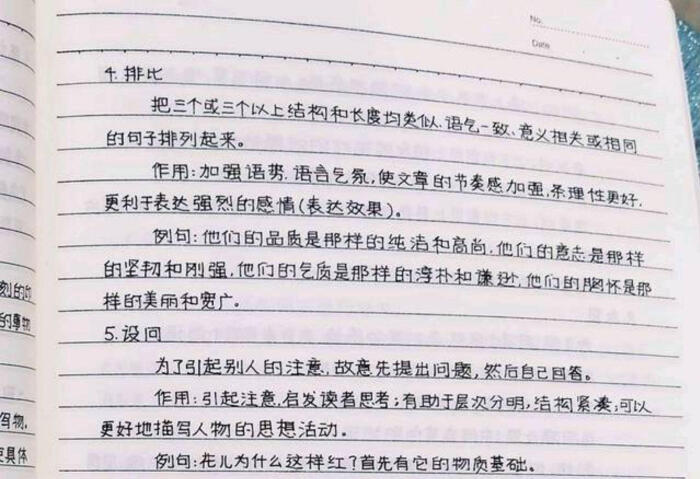 No.
Date
4.排比
把三个或三个以上结构和长度均类似、语气一致、意义相关或相同
的句子排列起来。
作用:加强语势、语言气氛,使文章的节奏感加强,条理性更好,
更利于表达强烈的感情(表达效果)。
例句:他们的品质是那样的纯洁和高尚,他们的意志是那样
的坚韧和刚强,他们的气质是那样的淳朴和谦逊,他们的胸怀是那
样的美丽和宽广。
5.设问
为了引起别人的注意,故意先提出问题,然后自己回答。
作用:引起注意,启发读者思考;有助于层次分明,结构紧凑;可以
更好地描写人物的思想活动。
例句:花儿为什么这样红?首先有它的物质基础。
刻的印
的事物
写物,
更具体